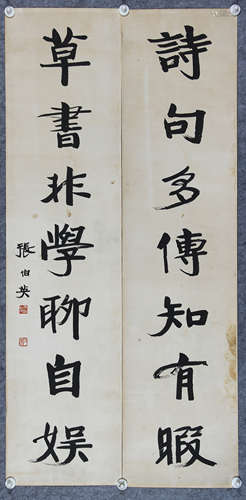 詩句多傳知有暇
草書非學聊自娛
張伯英